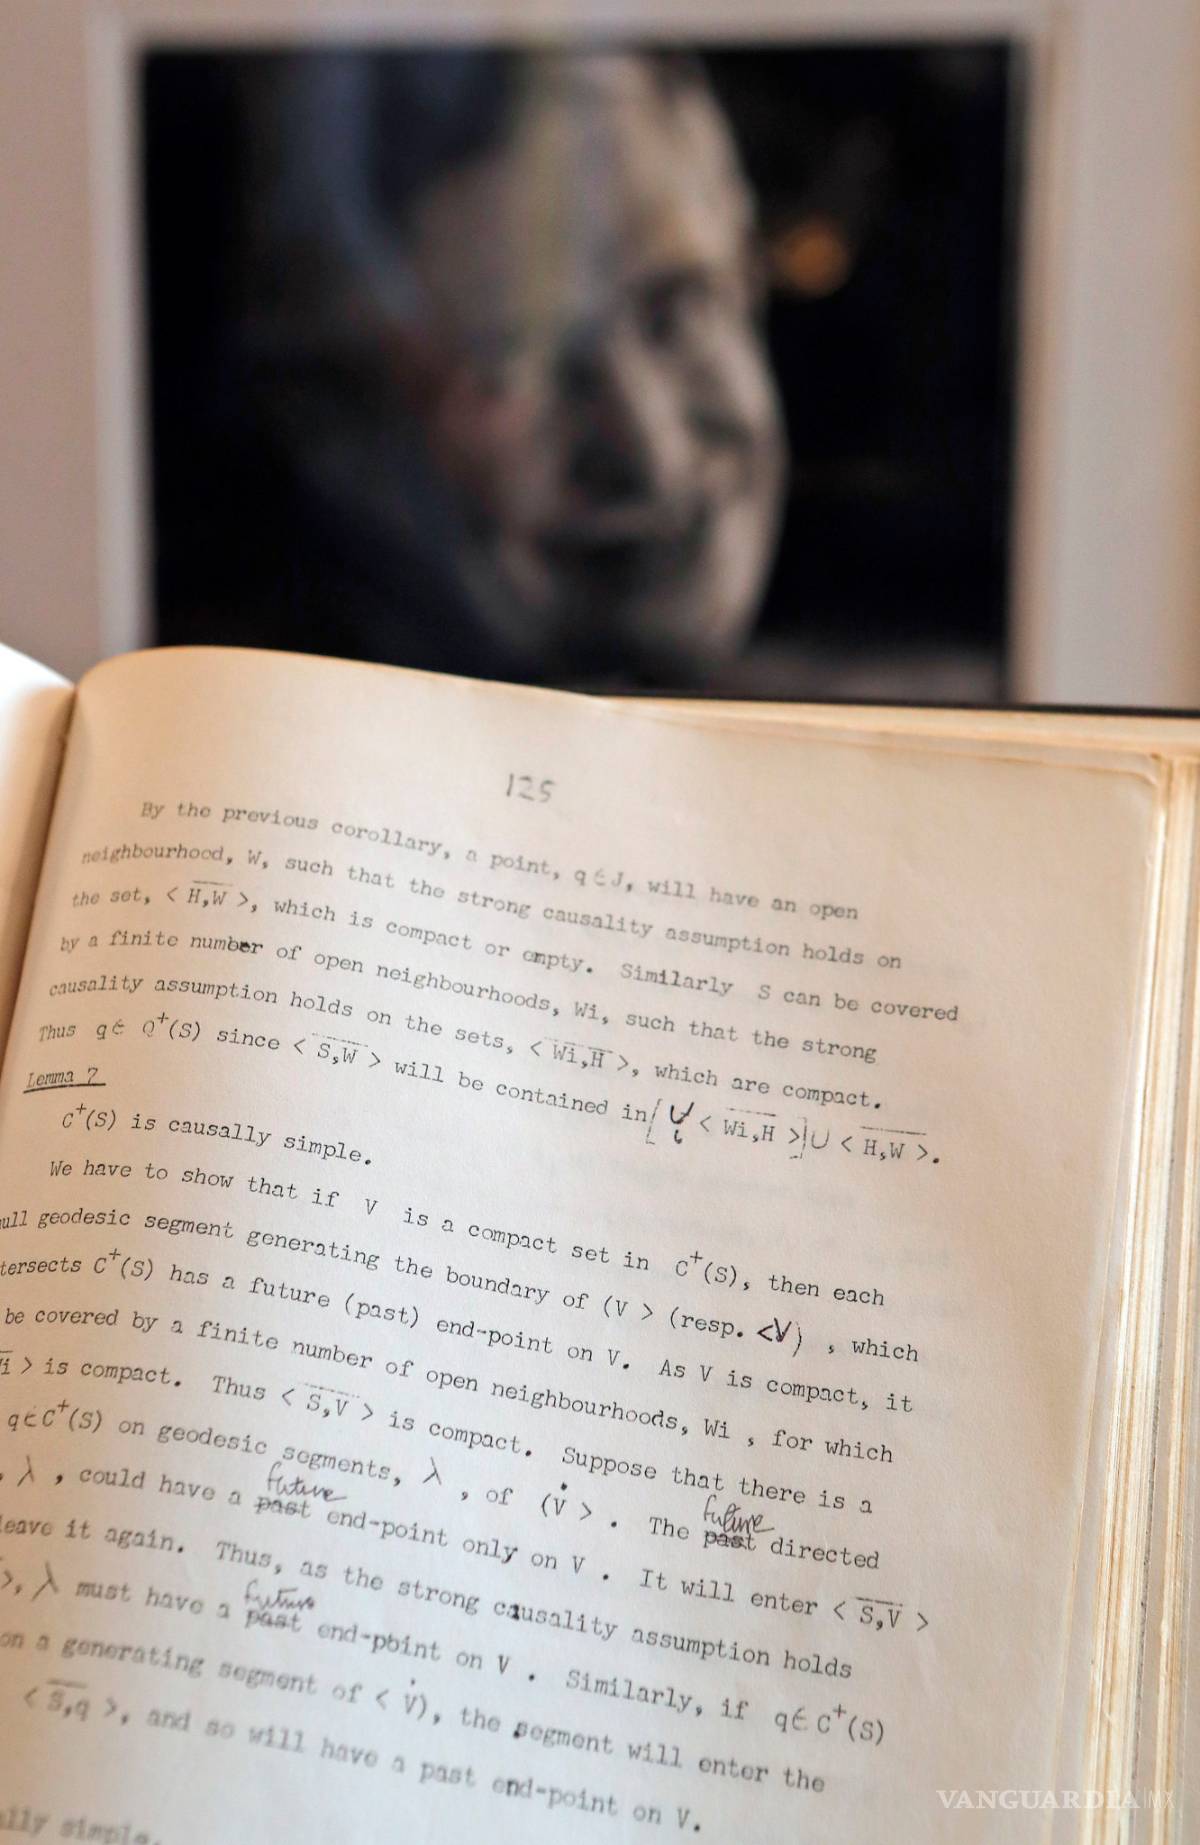 125
By the previous corollary, a point, q ∈ J, will have an open
neighbourhood, W, such that the strong causality assumption holds on
the set, < H,W >, which is compact or empty. Similarly S can be covered
by a finite number of open neighbourhoods, Wi, such that the strong
causality assumption holds on the sets, < Wi,H >, which are compact.
Thus q ∈ Q⁺(S) since < S,W > will be contained in [ ∪ᵢ < Wi,H >] ∪ < H,W >.
Lemma 7
C⁺(S) is causally simple.
We have to show that if V is a compact set in C⁺(S), then each
null geodesic segment generating the boundary of (V > (resp. <V) , which
tersects C⁺(S) has a future (past) end-point on V. As V is compact, it
be covered by a finite number of open neighbourhoods, Wi , for which
i > is compact. Thus < S,V > is compact. Suppose that there is a
q ∈ C⁺(S) on geodesic segments, λ , of (V̇ > . The past future directed
, λ , could have a past future end-point only on V . It will enter < S,V >
leave it again. Thus, as the strong causality assumption holds
>, λ must have a past future end-point on V . Similarly, if q ∈ C⁺(S)
on a generating segment of < V̇), the segment will enter the
< S,q >, and so will have a past end-point on V.
ally simple.
VANGUARDIA|MX